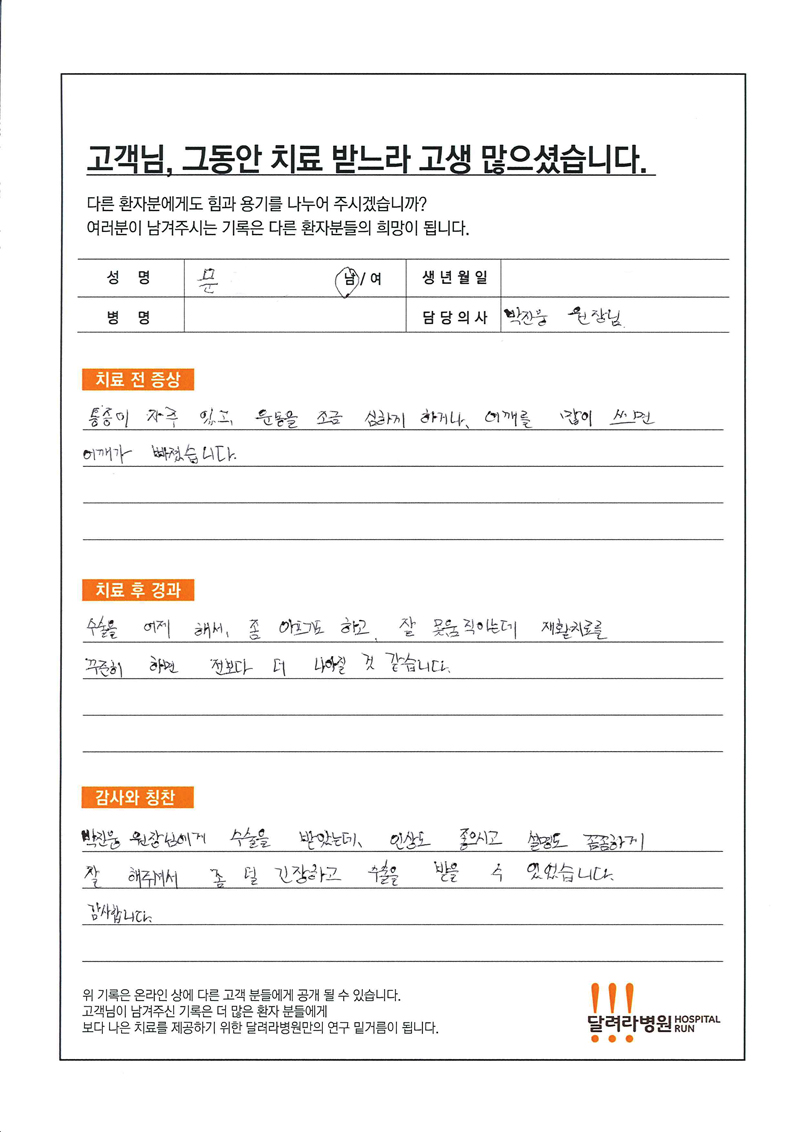 고객님, 그동안 치료 받느라 고생 많으셨습니다.
다른 환자분에게도 힘과 용기를 나누어 주시겠습니까?
여러분이 남겨주시는 기록은 다른 환자분들의 희망이 됩니다.
성 명 문 남 / 여 생년월일
병 명 담당의사 박진웅 원장님
치료 전 증상
통증이 자주 있고, 운동을 조금 심하게 하거나, 어깨를 많이 쓰면
어깨가 빠졌습니다.
치료 후 경과
수술을 어제 해서, 좀 아프기도 하고, 잘 못움직이는데 재활치료를
꾸준히 하면 전보다 더 나아질 것 같습니다.
감사와 칭찬
박진웅 원장님에게 수술을 받았는데, 인상도 좋으시고 설명도 꼼꼼하게
잘 해주셔서 좀 덜 긴장하고 수술을 받을 수 있었습니다.
감사합니다.
위 기록은 온라인 상에 다른 고객 분들에게 공개 될 수 있습니다.
고객님이 남겨주신 기록은 더 많은 환자 분들에게
보다 나은 치료를 제공하기 위한 달려라병원만의 연구 밑거름이 됩니다.
달려라병원 HOSPITAL RUN